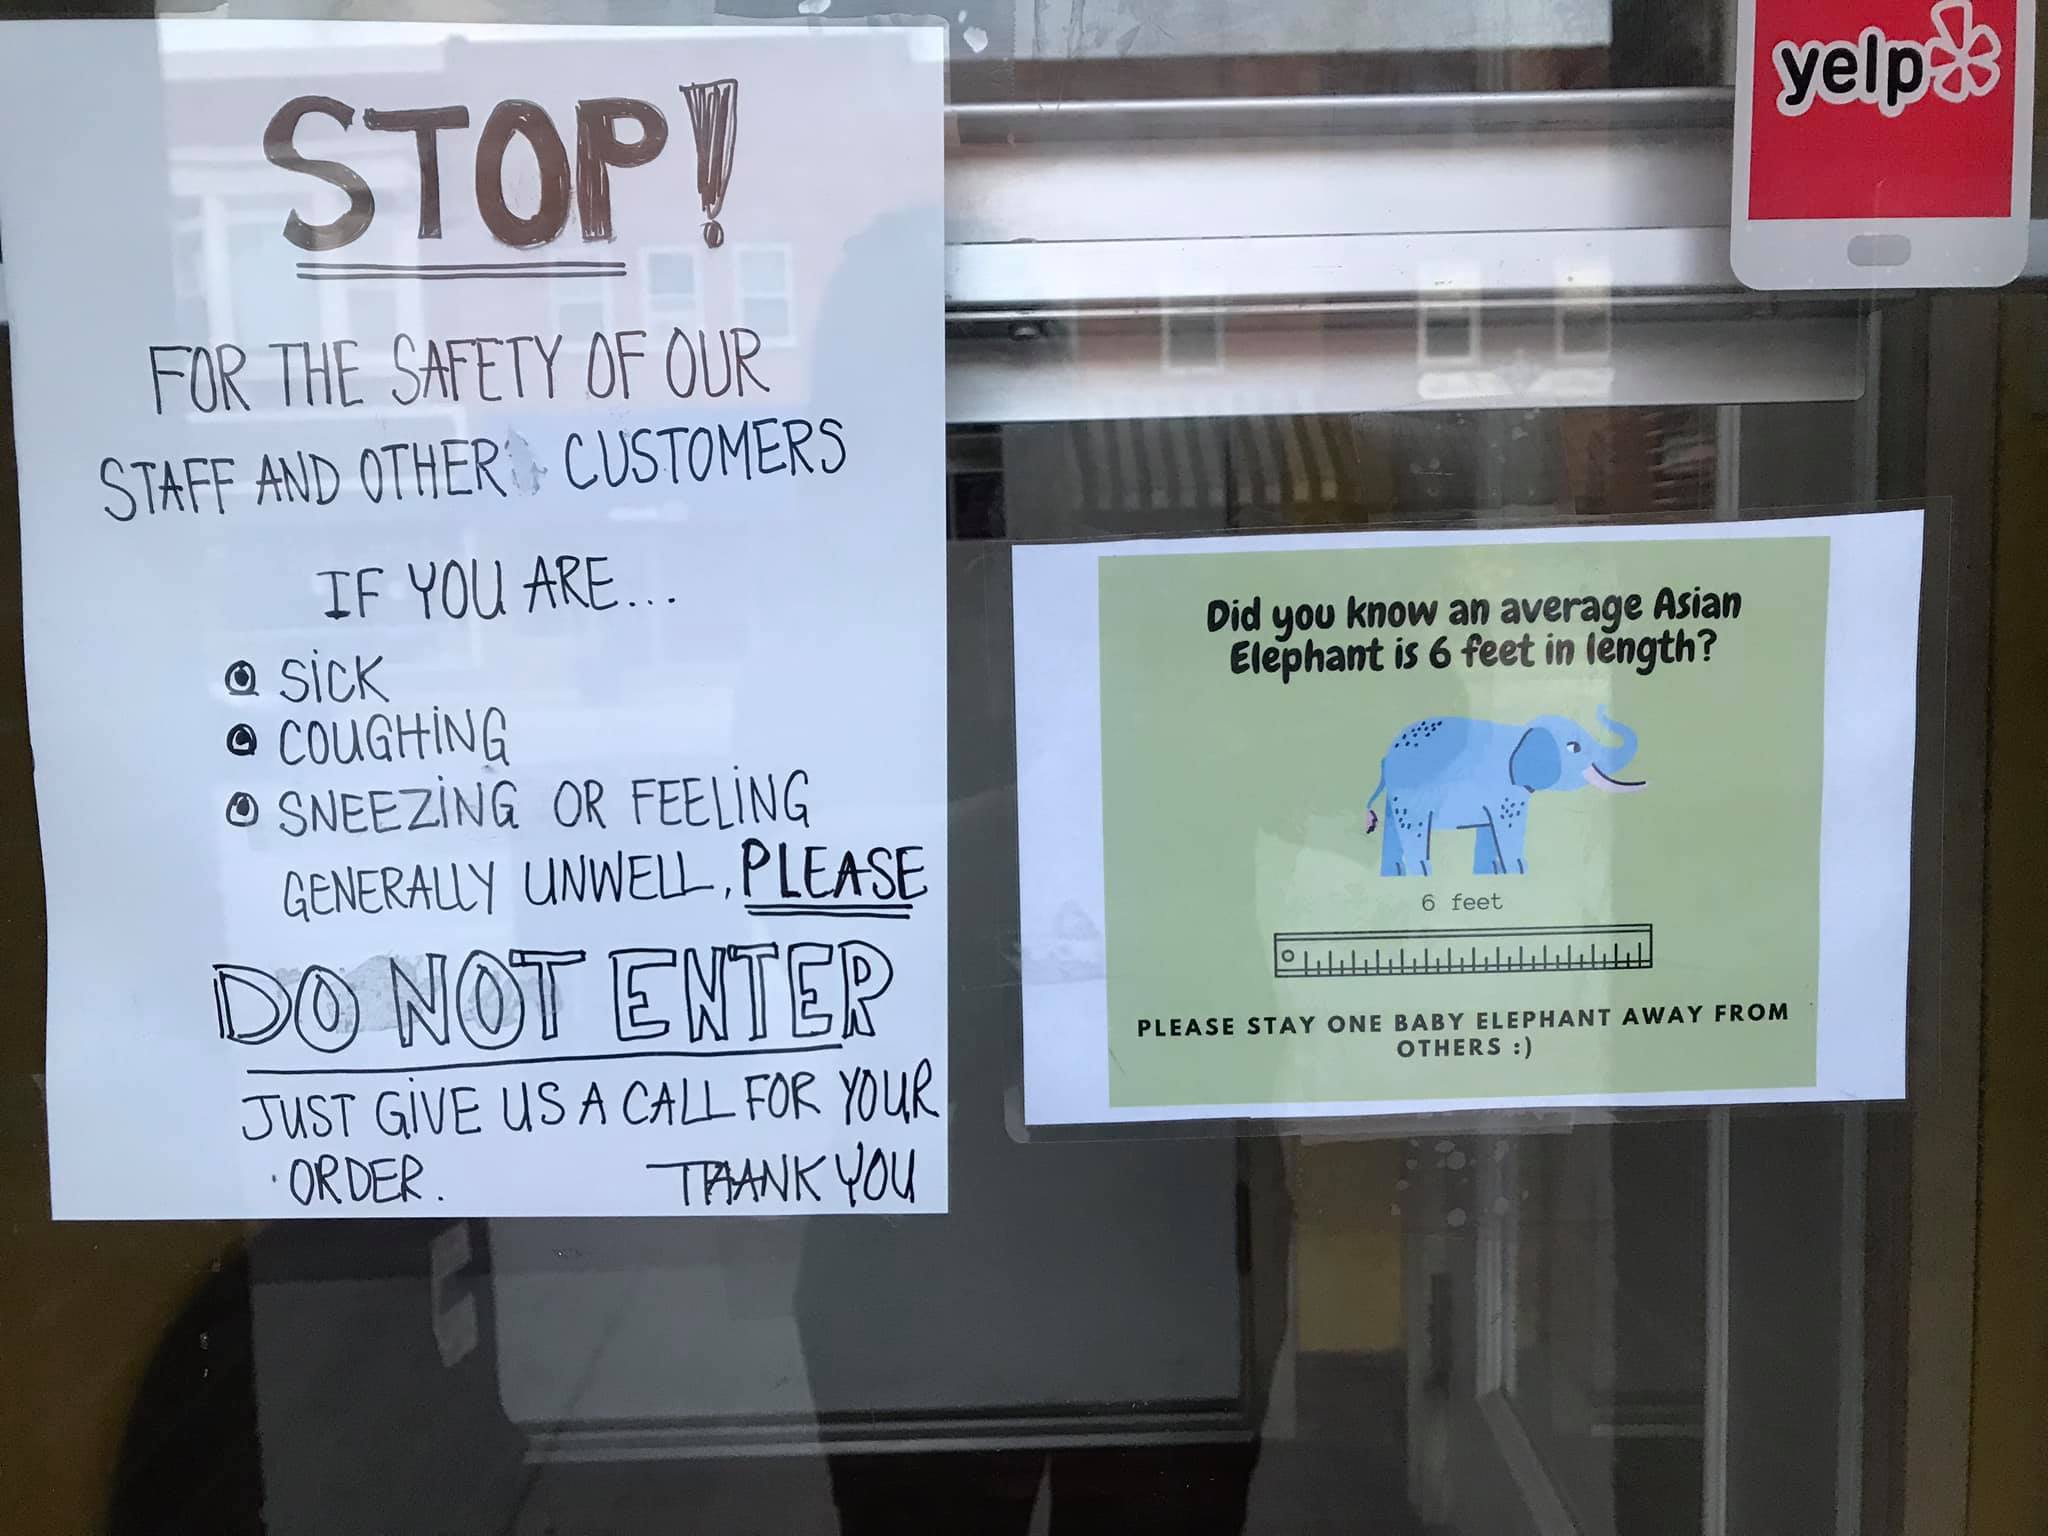 STOP!
FOR THE SAFETY OF OUR
STAFF AND OTHER CUSTOMERS
IF YOU ARE...
SICK
COUGHING
SNEEZING OR FEELING
GENERALLY UNWELL, PLEASE
DO NOT ENTER
JUST GIVE US A CALL FOR YOUR
ORDER. THANK YOU
yelp
Did you know an average Asian
Elephant is 6 feet in length?
6 feet
PLEASE STAY ONE BABY ELEPHANT AWAY FROM
OTHERS :)